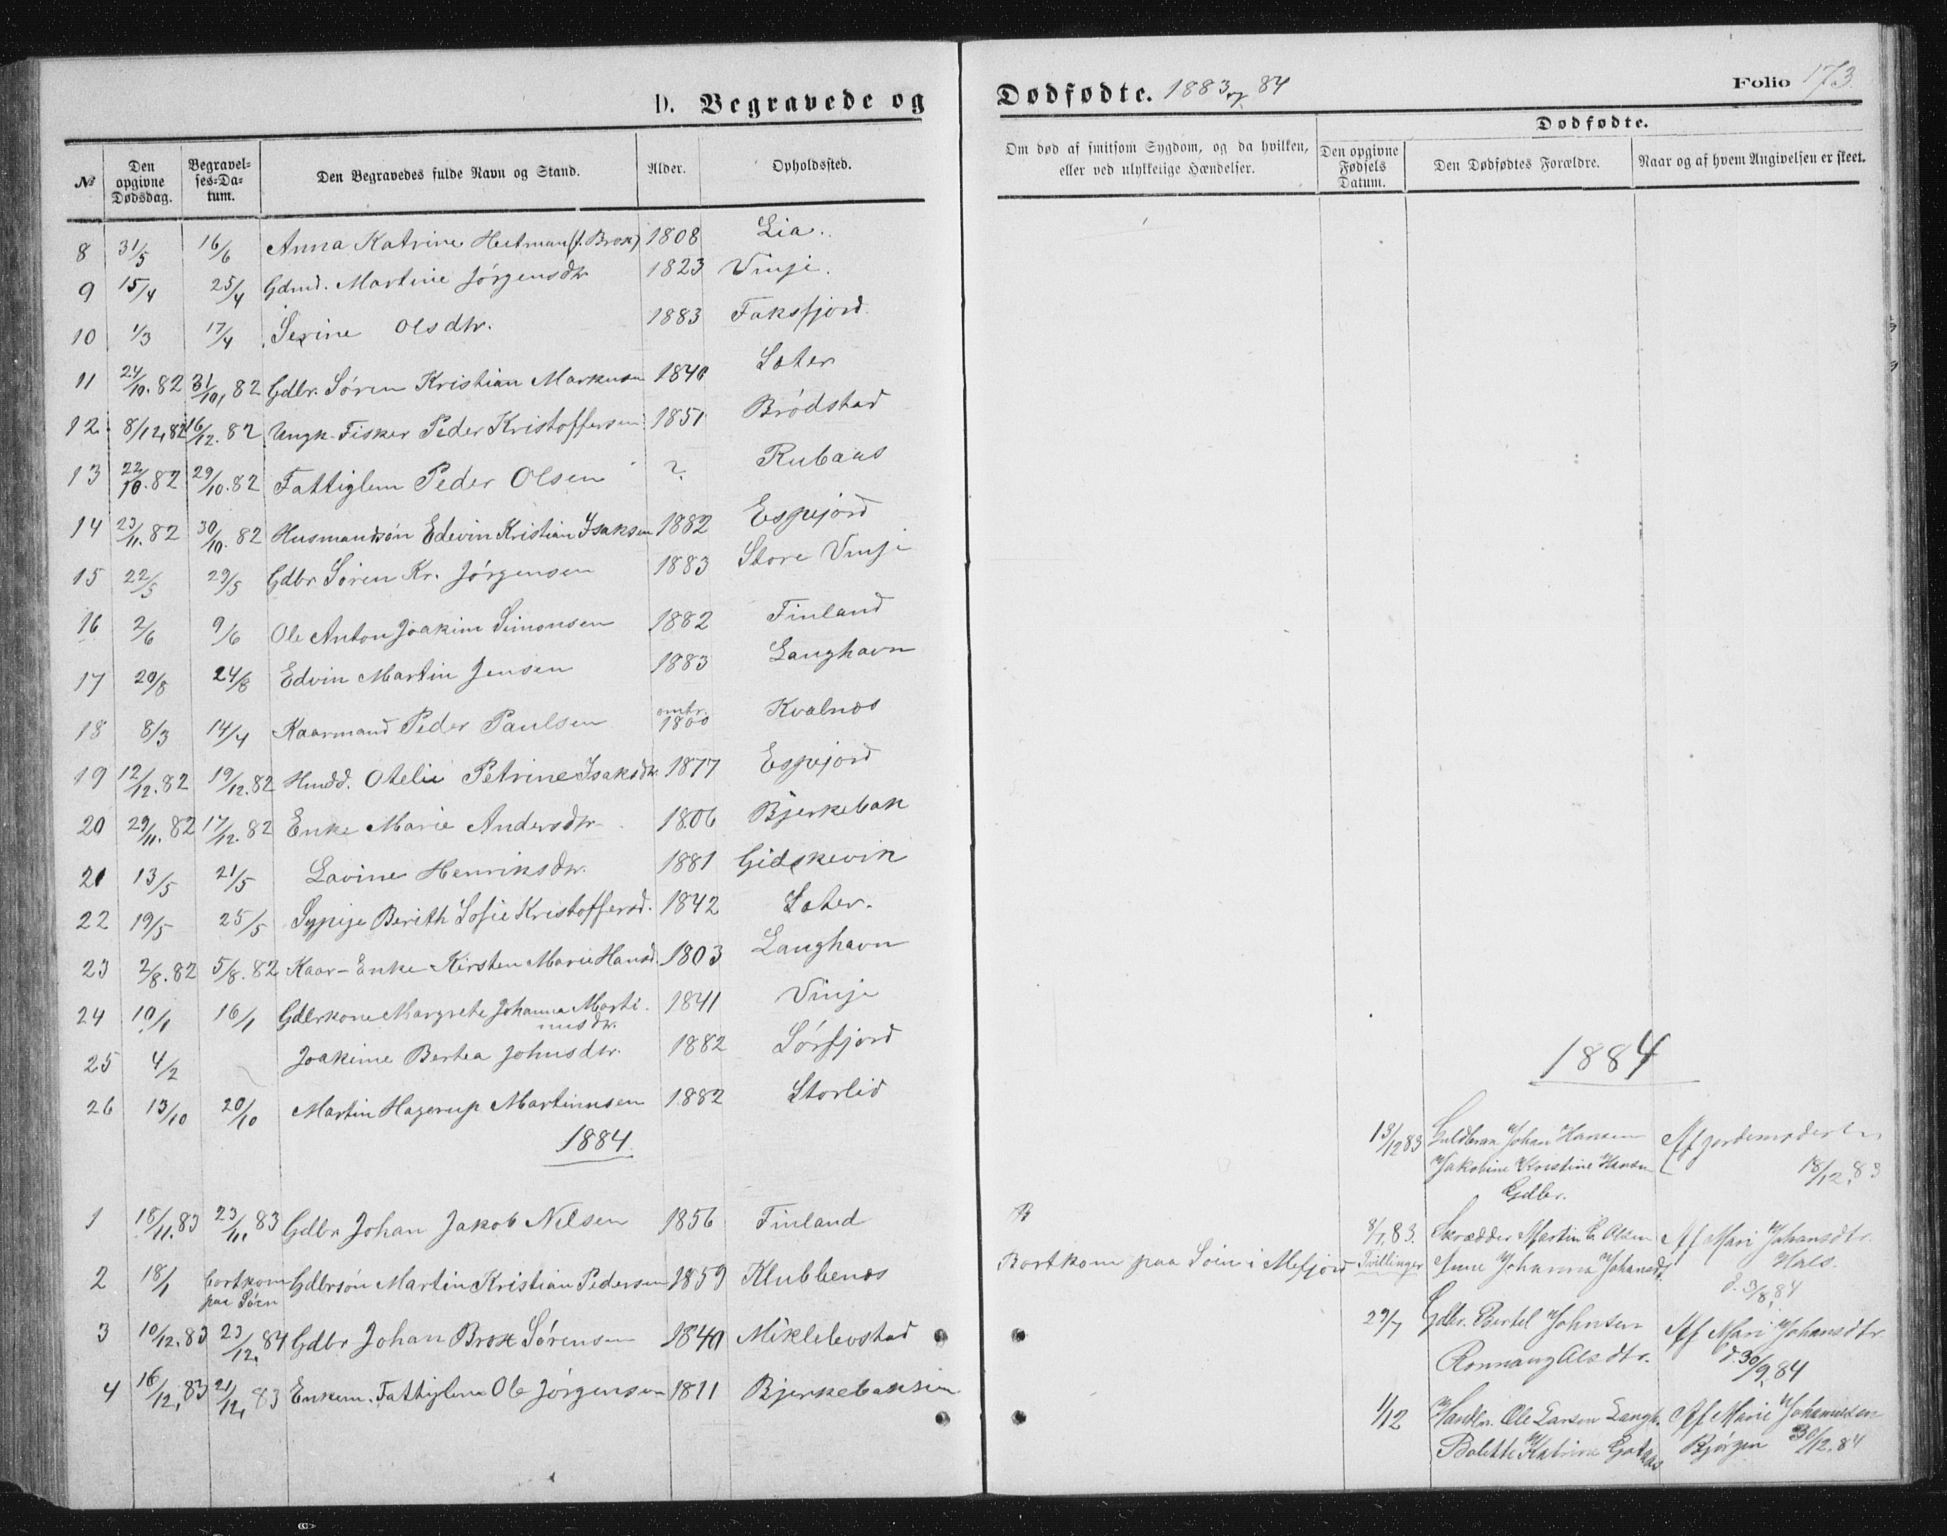 D. Begravede og
Dødfødte. 1883 og 84
Folio 173
№
Den opgivne Dødsdag.
Begravelses-Datum.
Den Begravedes fulde Navn og Stand.
Alder.
Opholdssted.
Om død af smitsom Sygdom, og da hvilken, eller ved ulykkelige Hændelser.
Dødfødte.
Den opgivne Fødsels Datum.
Den Dødfødtes Forældre.
Naar og af hvem Angivelsen er skeet.
8 31/5 16/6 Anna Katrine Heitman (f. Brox) 1808 Lia.
9 15/4 25/4 Gdmd. Martine Jørgensdtr 1823 Vinje.
10 1/3 17/4 Serine Olsdtr. 1883 Faksfjord.
11 24/10.82 31/10, 82 Gdbr. Søren Kristian Markusen 1840 Sæter
12. 8/12,82 16/12.82 Ungk. Fisker Peder Kristoffersen 1851 Brødstad
13 22/10.82 29/10.82 Fattiglem Peder Olsen ? Rubaas
14 23/11.82 30/10.82 Husmandsøn Edevin Kristian Isaksen 1882 Espejord
15 22/5 29/5 Gdbr Søren Kr. Jørgensen 1883 Store Vinje
16 2/6 9/6 Ole Anton Joakim Simonsen 1882 Finland
17 20/8 24/8 Edvin Martin Jensen 1883 Langhavn
18 8/3 14/4 Kaarmand Peder Paulsen omtr. 1800 Kvalnæs
19 12/12.82 19/12.82 Hmdd. Otelie Petrine Isaksdtr 1877 Espejord
20 29/11.82 17/12.82 Enke Marie Andersdtr 1806 Bjerkebak
21 13/5 21/5 Lavine Henriksdtr. 1881 Gidskevik
22 19/5 25/5 Sypige Berith Sofie Kristoffersd. 1842 Sæter.
23 2/8.82 5/8.82 Kaar-Enke Kirsten Marie Hansd. 1803 Langhavn
24 10/1 16/1 Gdbrkone Margrete Johanna Martinusdtr. 1841 Vinje
25 4/2 Joakime Bertea Johnsdtr. 1882 Sørfjord
26 13/10 20/10 Martin Hagerup Martinusen 1882 Storlid
1884.
1 18/11.83 23/11, 83 Gdbr Johan Jakob Nilsen 1856 Finland
2 18/1 bortkom paa Søen Gdbrsøn Martin Kristian Pedersen 1859 Klubbenæs Bortkom paa Søen i Mefjord
3 10/12.83 23/12.84 Gdbr Johan Brox Sørensen 1840 Miklebostad
4 16/12,83 21/12, 83 Enkem. Fattiglem Ole Jørgensen 1811 Bjerkebaksen
1884
13/12 83 Guldbran Johan Hansen Af Jordemoderen
Jakobine Kristine Hansen 18/12,83
Gdbr.
8/1,83. Skrædder Martin E. Olsen Af Mari Johansdtr.
Tvillinger Anne Johanna Johansd. Hals.
d. 3/8,84
29/7 Gdbr. Bertel Johnsen Af Mari Johansdtr
Ronnaug Olsdtr. d. 30/9,84
1/12 Handlr. Ole Larsen Langh. Af Marie Johannesen
Bolette Katrine Bjørgen 30/12.84